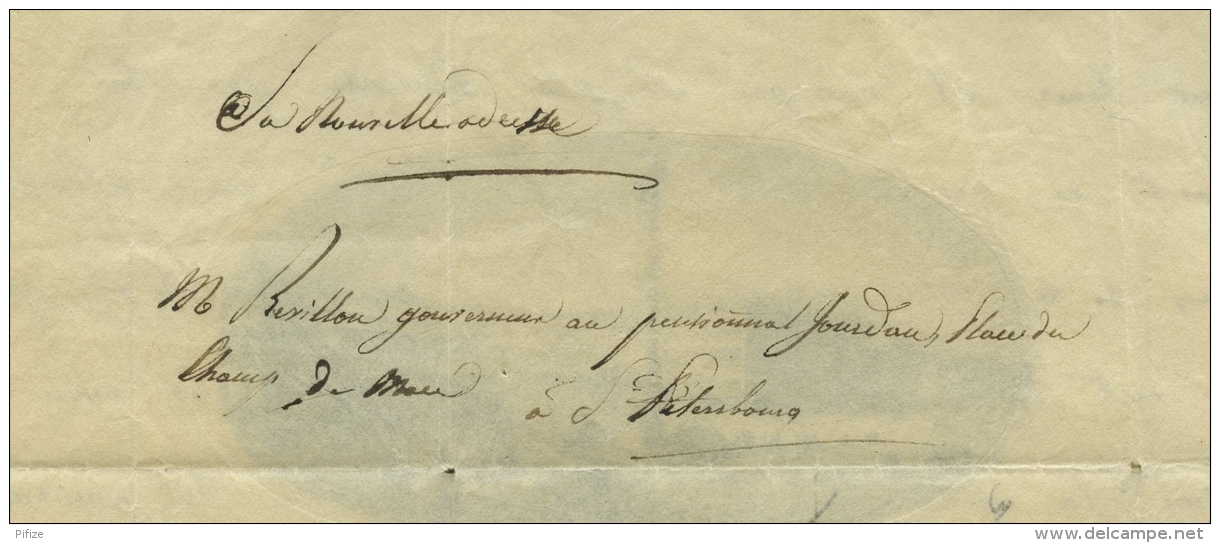 Sa Nouvelle adresse
M Revillon gouverneur au pensionnat Jourdan, Place du
Champ de Mars
à St Pétersbourg
Pifize
www.delcampe.net